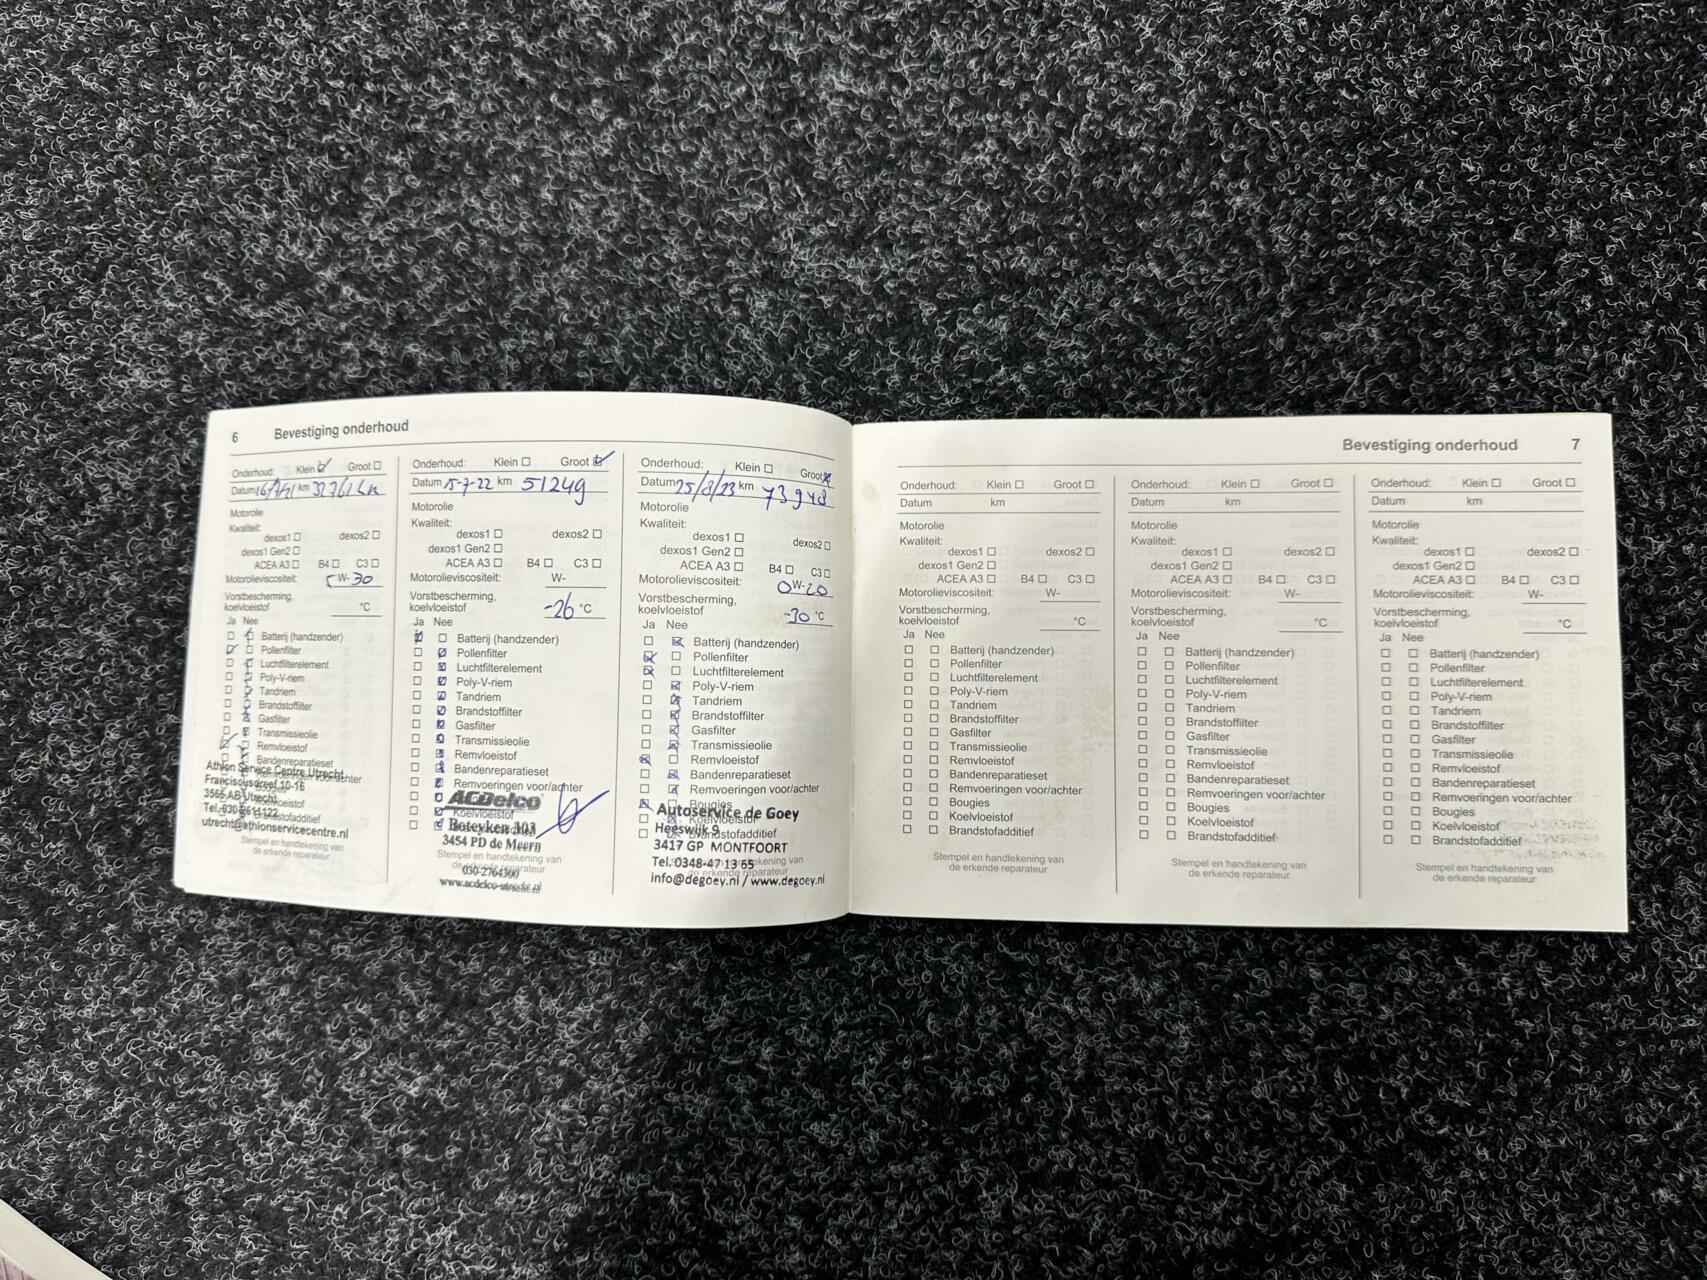 6 Bevestiging onderhoud
Onderhoud: Klein Groot
Datum km
Motorolie
Kwaliteit:
dexos1 dexos2
dexos1 Gen2
ACEA A3 B4 C3
Motorolieviscositeit: 5 W- 30
Vorstbescherming,
koelvloeistof °C
Ja Nee
Batterij (handzender)
Pollenfilter
Luchtfilterelement
Poly-V-riem
Tandriem
Brandstoffilter
Gasfilter
Transmissieolie
Remvloeistof
Bandenreparatieset
Athlon Service Centre Utrecht
Franciscusdreef 10-16
3565 AB Utrecht
utrecht@athlonservicecentre.nl
Stempel en handtekening van
de erkende reparateur
Onderhoud: Klein Groot
Datum 15-7-22 km 51249
Motorolie
Kwaliteit:
dexos1 dexos2
dexos1 Gen2
ACEA A3 B4 C3
Motorolieviscositeit: W-
Vorstbescherming,
koelvloeistof -26 °C
Ja Nee
Batterij (handzender)
Pollenfilter
Luchtfilterelement
Poly-V-riem
Tandriem
Brandstoffilter
Gasfilter
Transmissieolie
Remvloeistof
Bandenreparatieset
Remvoeringen voor/achter
ACDelco
Koelvloeistof
Boteyken 303
3454 PD de Meern
Stempel en handtekening van
de erkende reparateur
030-2764300
Onderhoud: Klein Groot
Datum 25/8/23 km 73948
Motorolie
Kwaliteit:
dexos1 dexos2
dexos1 Gen2
ACEA A3 B4 C3
Motorolieviscositeit: 0 W- 20
Vorstbescherming,
koelvloeistof -30 °C
Ja Nee
Batterij (handzender)
Pollenfilter
Luchtfilterelement
Poly-V-riem
Tandriem
Brandstoffilter
Gasfilter
Transmissieolie
Remvloeistof
Bandenreparatieset
Remvoeringen voor/achter
Bougies
Autoservice de Goey
Koelvloeistof
Heeswijk 9
Brandstofadditief
3417 GP MONTFOORT
Tel. 0348-47 13 65
de erkende reparateur
info@degoey.nl / www.degoey.nl
Bevestiging onderhoud 7
Onderhoud: Klein Groot
Datum km
Motorolie
Kwaliteit:
dexos1 dexos2
dexos1 Gen2
ACEA A3 B4 C3
Motorolieviscositeit: W-
Vorstbescherming,
koelvloeistof °C
Ja Nee
Batterij (handzender)
Pollenfilter
Luchtfilterelement
Poly-V-riem
Tandriem
Brandstoffilter
Gasfilter
Transmissieolie
Remvloeistof
Bandenreparatieset
Remvoeringen voor/achter
Bougies
Koelvloeistof
Brandstofadditief
Stempel en handtekening van
de erkende reparateur
Onderhoud: Klein Groot
Datum km
Motorolie
Kwaliteit:
dexos1 dexos2
dexos1 Gen2
ACEA A3 B4 C3
Motorolieviscositeit: W-
Vorstbescherming,
koelvloeistof °C
Ja Nee
Batterij (handzender)
Pollenfilter
Luchtfilterelement
Poly-V-riem
Tandriem
Brandstoffilter
Gasfilter
Transmissieolie
Remvloeistof
Bandenreparatieset
Remvoeringen voor/achter
Bougies
Koelvloeistof
Brandstofadditief
Stempel en handtekening van
de erkende reparateur
Onderhoud: Klein Groot
Datum km
Motorolie
Kwaliteit:
dexos1 dexos2
dexos1 Gen2
ACEA A3 B4 C3
Motorolieviscositeit: W-
Vorstbescherming,
koelvloeistof °C
Ja Nee
Batterij (handzender)
Pollenfilter
Luchtfilterelement
Poly-V-riem
Tandriem
Brandstoffilter
Gasfilter
Transmissieolie
Remvloeistof
Bandenreparatieset
Remvoeringen voor/achter
Bougies
Koelvloeistof
Brandstofadditief
Stempel en handtekening van
de erkende reparateur